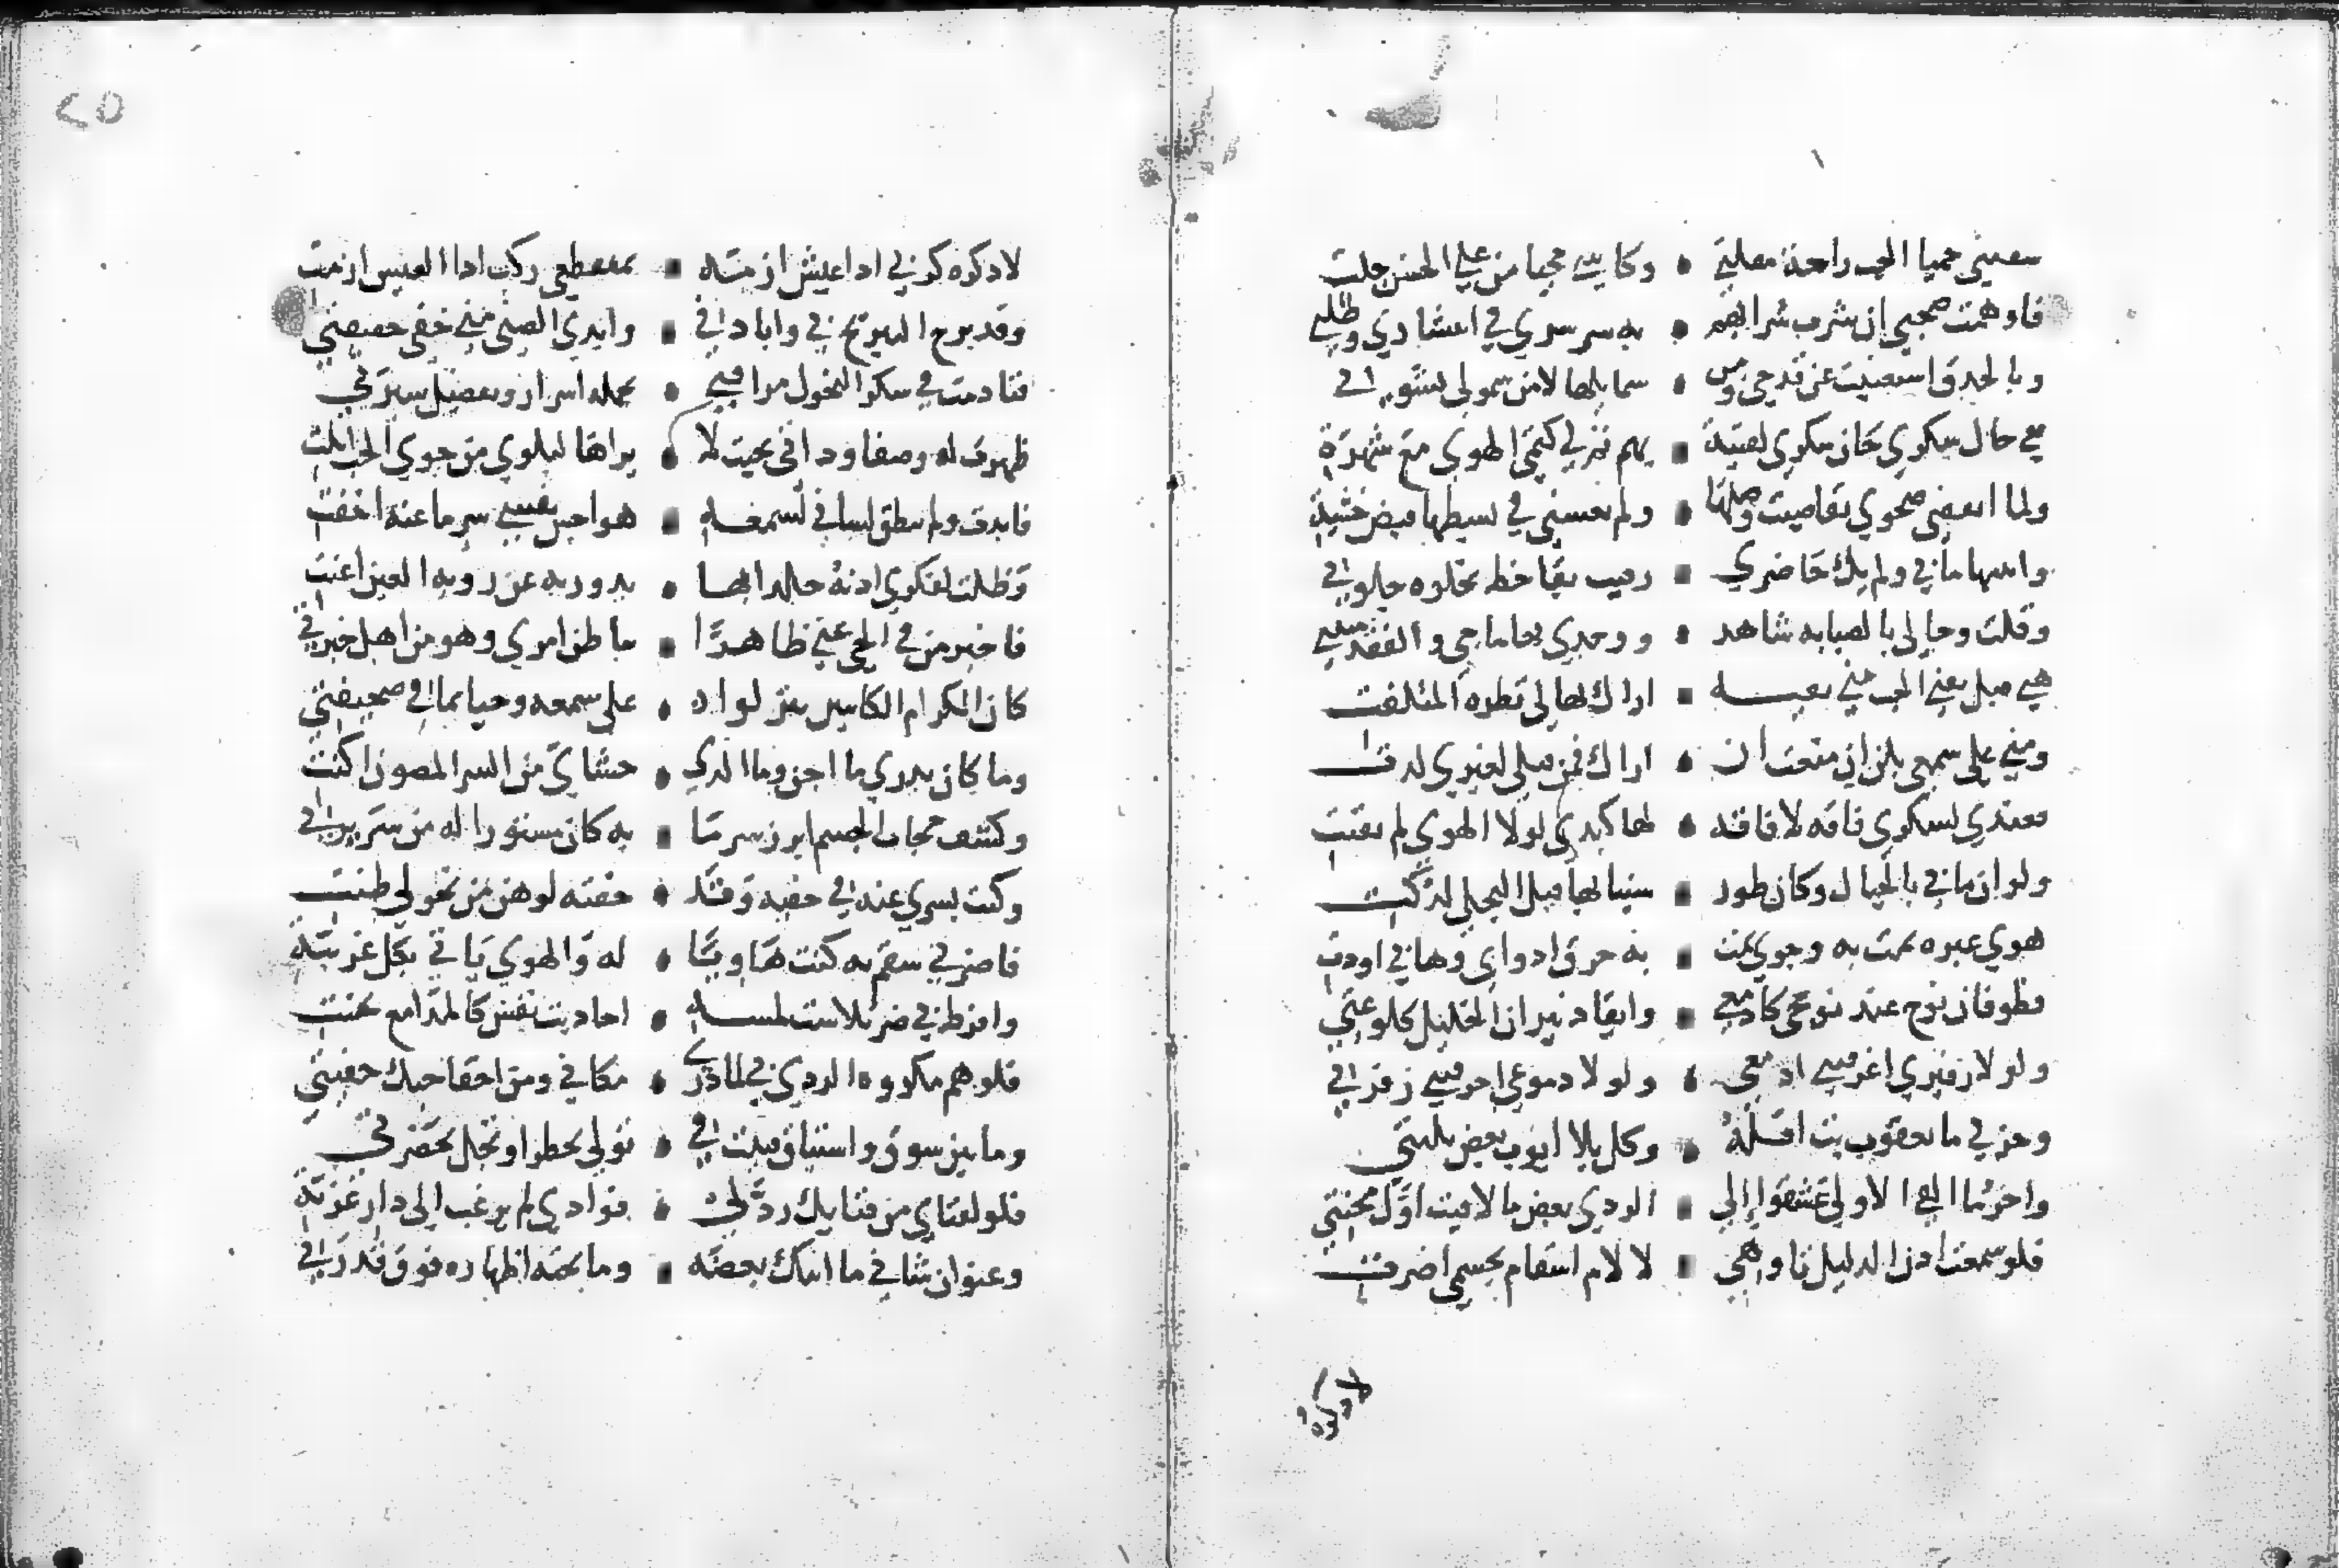 سقتني حميا الحب راحة مقلتي • وكاسي محيا من على الحسن جلت
فاوهمت صحبي ان شرب شرابهم • به سر سري في انتشادي وطلبي
وبالحدق استغنيت عن قدحي ومن • شمايلها لا من شمولي نشوتي
ففي حان سكري حان سكري لفتية • بهم تم لي كتمي الهوى مع شهرة
ولما انقضى صحوي تقاضيت وصلها • ولم يغشني في بسطها قبض خشية
وابثثتها ما بي ولم يك حاضري • رقيب بقا حظ بخلوة جلوتي
وقلت وحالي بالصبابة شاهد • ووجدي بها ماحي والفقد مثبتي
هبي قبل يفني الحب مني بقية • اراك بها لي نظرة المتلفت
ومني على سمعي بلن ان منعت ان • اراك فمن قبلي لغيري لذت
فعندي لسكري فاقة لافاقة • لها كبدي لولا الهوى لم تفتت
ولو ان ما بي بالجبال وكان طور • سينا بها قبل التجلي لدكت
هوى عبرة نمت به وجوى نمت • به حرق ادواي وها بي اودت
فطوفان نوح عند نوحي كادمعي • وايقاد نيران الخليل كلوعتي
ولولا زفيري اغرقتني ادمعي • ولولا دموعي احرقتني زفرتي
وحزني ما يعقوب بث اقله • وكل بلا ايوب بعض بليتي
واخر ما القى الاولى عشقوا الى • الردى بعض ما لاقيت اول محنتي
فلو سمعت اذن الدليل تاوهي • لالام اسقام بجسمي اضرت
لاذكره كربي اذا عيش ازمة • بمنقطعي ركب اذا العيس ازمت
وقد برح التبريح بي وابادني • وابدى الضنى مني خفي حقيقتي
فنادمت في سكر النحول مراقبي • بجملة اسرار وتفصيل سيرتي
ظهرت له وصفا وذاتي بحيث لا • يراها لبلوى من جوى الحب ابلت
فابدت ولم ينطق لساني لسمعه • هواجس نفسي سر ما عنه اخفت
وظلت لفكري اذنه خلدا بها • يدور به عن روية العين اغنت
فاخبر من في الحي عني ظاهرا • باطن امري وهو من اهل خبرتي
كان الكرام الكاتبين تنزلوا • على سمعه وحيا بما في صحيفتي
وما كان يدري ما اجن وما الذي • حشاي من السر المصون اكنت
وكشف حجاب الجسم ابرز سر ما • به كان مستورا له من سريرتي
وكنت بسري عنه في خفية وقد • خفته لوهن من نحولي انتي
فاضرني سقم به كنت خافيا • له والهوى ياتي بكل غريبة
وافرط بي ضر تلاشت لمسه • احاديث نفس كالمدامع نمت
فلو هم مكروه الردى بي لما درى • مكاني ومن اخفا حبك خفيتي
وما بين شوق واشتياق فنيت في • تولي بحظر او تجل بحضرتي
فلو لفناي من فنايك رد لي • فوادي لم يرغب الى دار غربة
وعنوان شاني ما ابثك بعضه • وما تحته اظهاره فوق قدرتي
لاذكره